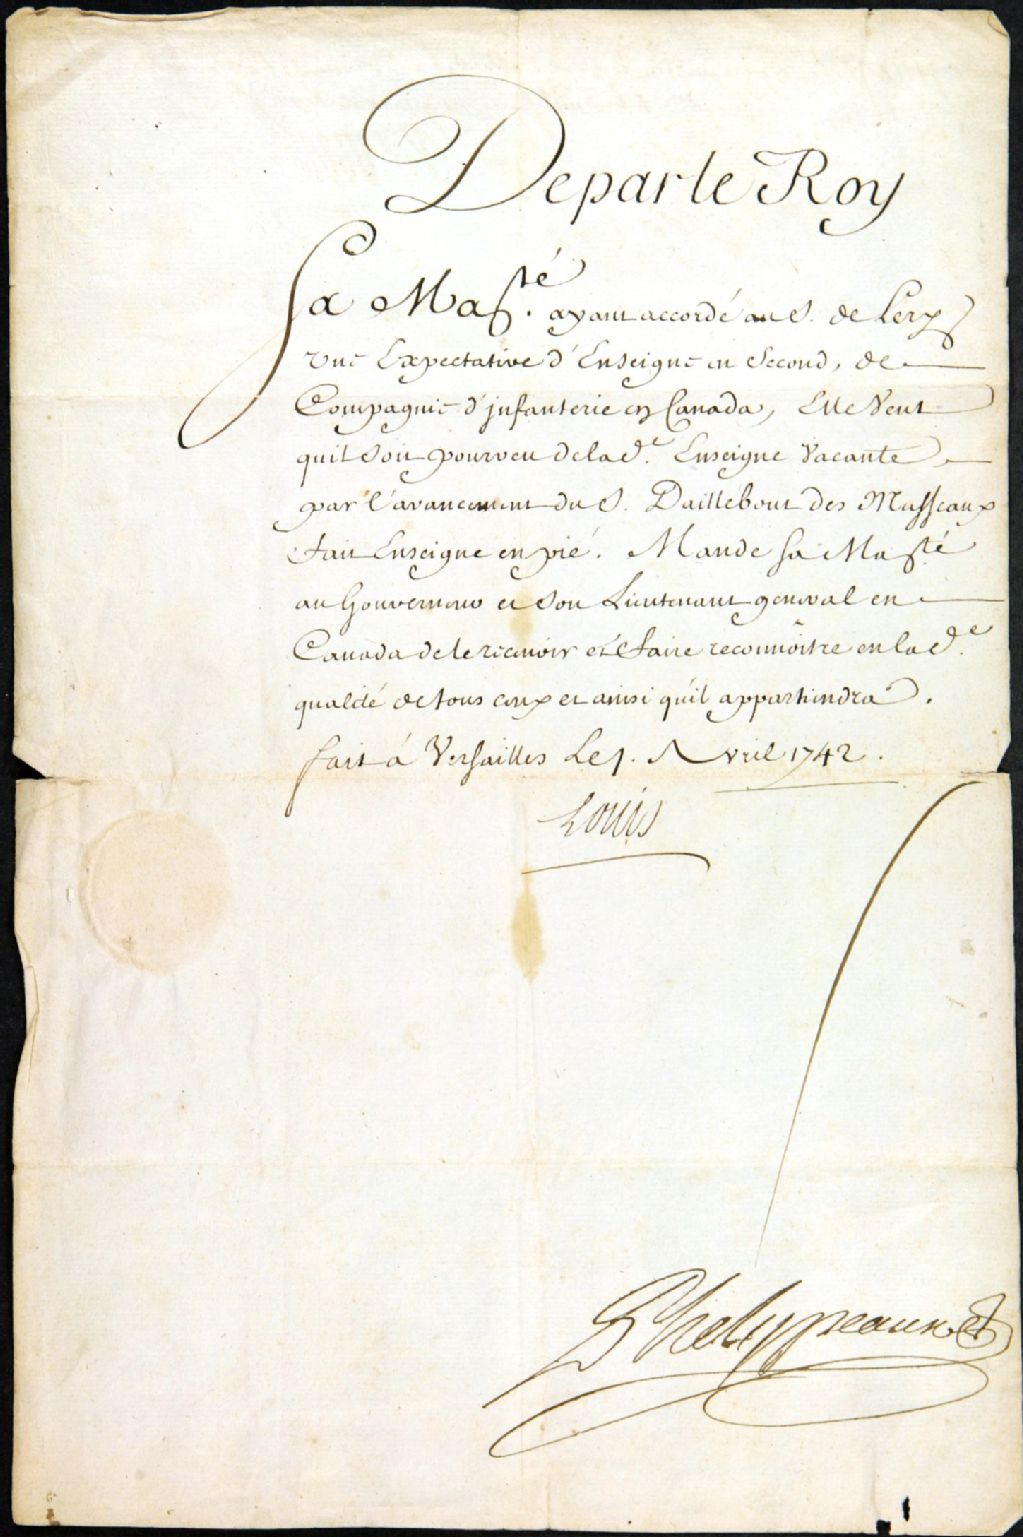 De par le Roy
Sa Ma.sté ayant accordé au S. de Lery
une Expectative d'Enseigne en Second, de
Compagnie d'jnfanterie en Canada, Elle Veut
quil soit pourveu de la d.e Enseigne Vacante
par l'avancement du S. Daillebout des Musseaux
fait Enseigne en pié. Mande Sa Ma.sté
au Gouverneur et son Lieutenant general en
Canada de le recevoir et faire reconnoître en la d.e
qualité de tous ceux et ainsi qu'il appartiendra.
fait à Versailles Le 1. Avril 1742.
Louis
Phelypeaux